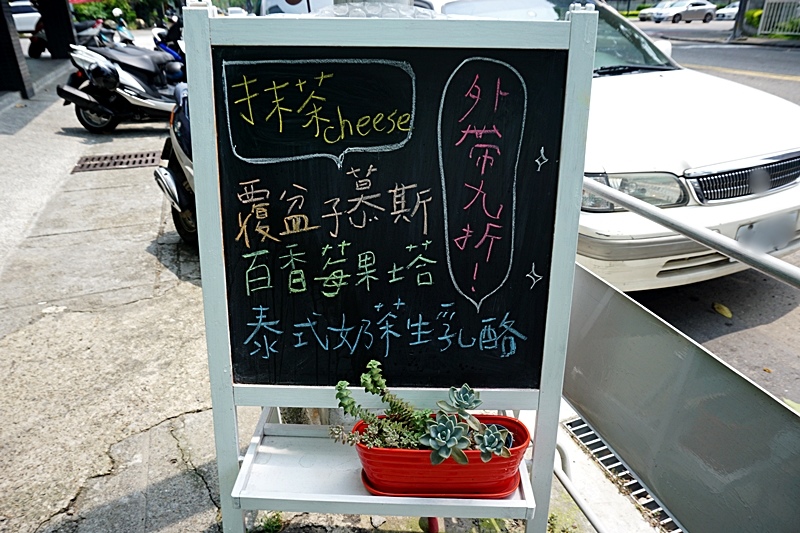 抹茶cheese
覆盆子慕斯
百香莓果塔
泰式奶茶生乳酪
外帶九折!